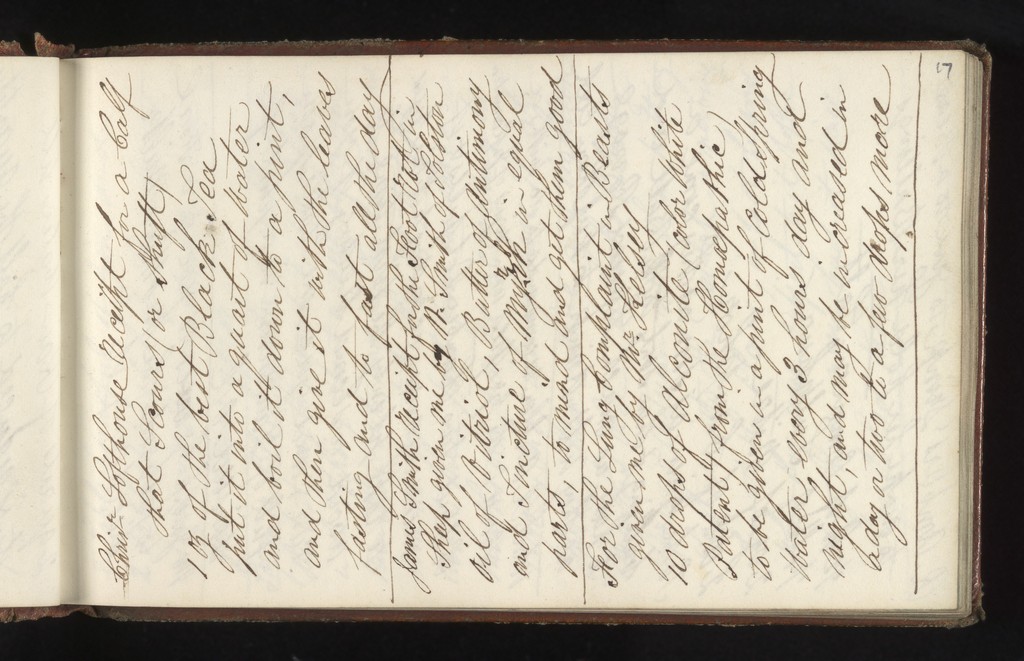 17
Chris.r Lofthouse Receipt for a Calf
that Scours (or Skuft)
1 oz of the best Black Tea
put it into a quart of water
and boil it down to a pint,
and then give it with the leaves
fasting and to fast all the day
James Smith receipt for the Foot Rot in
Sheep given me by W.m Smith of Ilston
oil of Vitriol, Butter of Antimony
and Tincture of Myrrh in equal
parts, to mind and get them good
For the Lung Complaint in Beasts
given me by M.r Kelsey
10 drops of Alconite (color white
Patent from the Homeopathic)
to be given in a pint of Cold Spring
Water every 3 hours day and
night, and may be increased in
a day or two to a few drops more